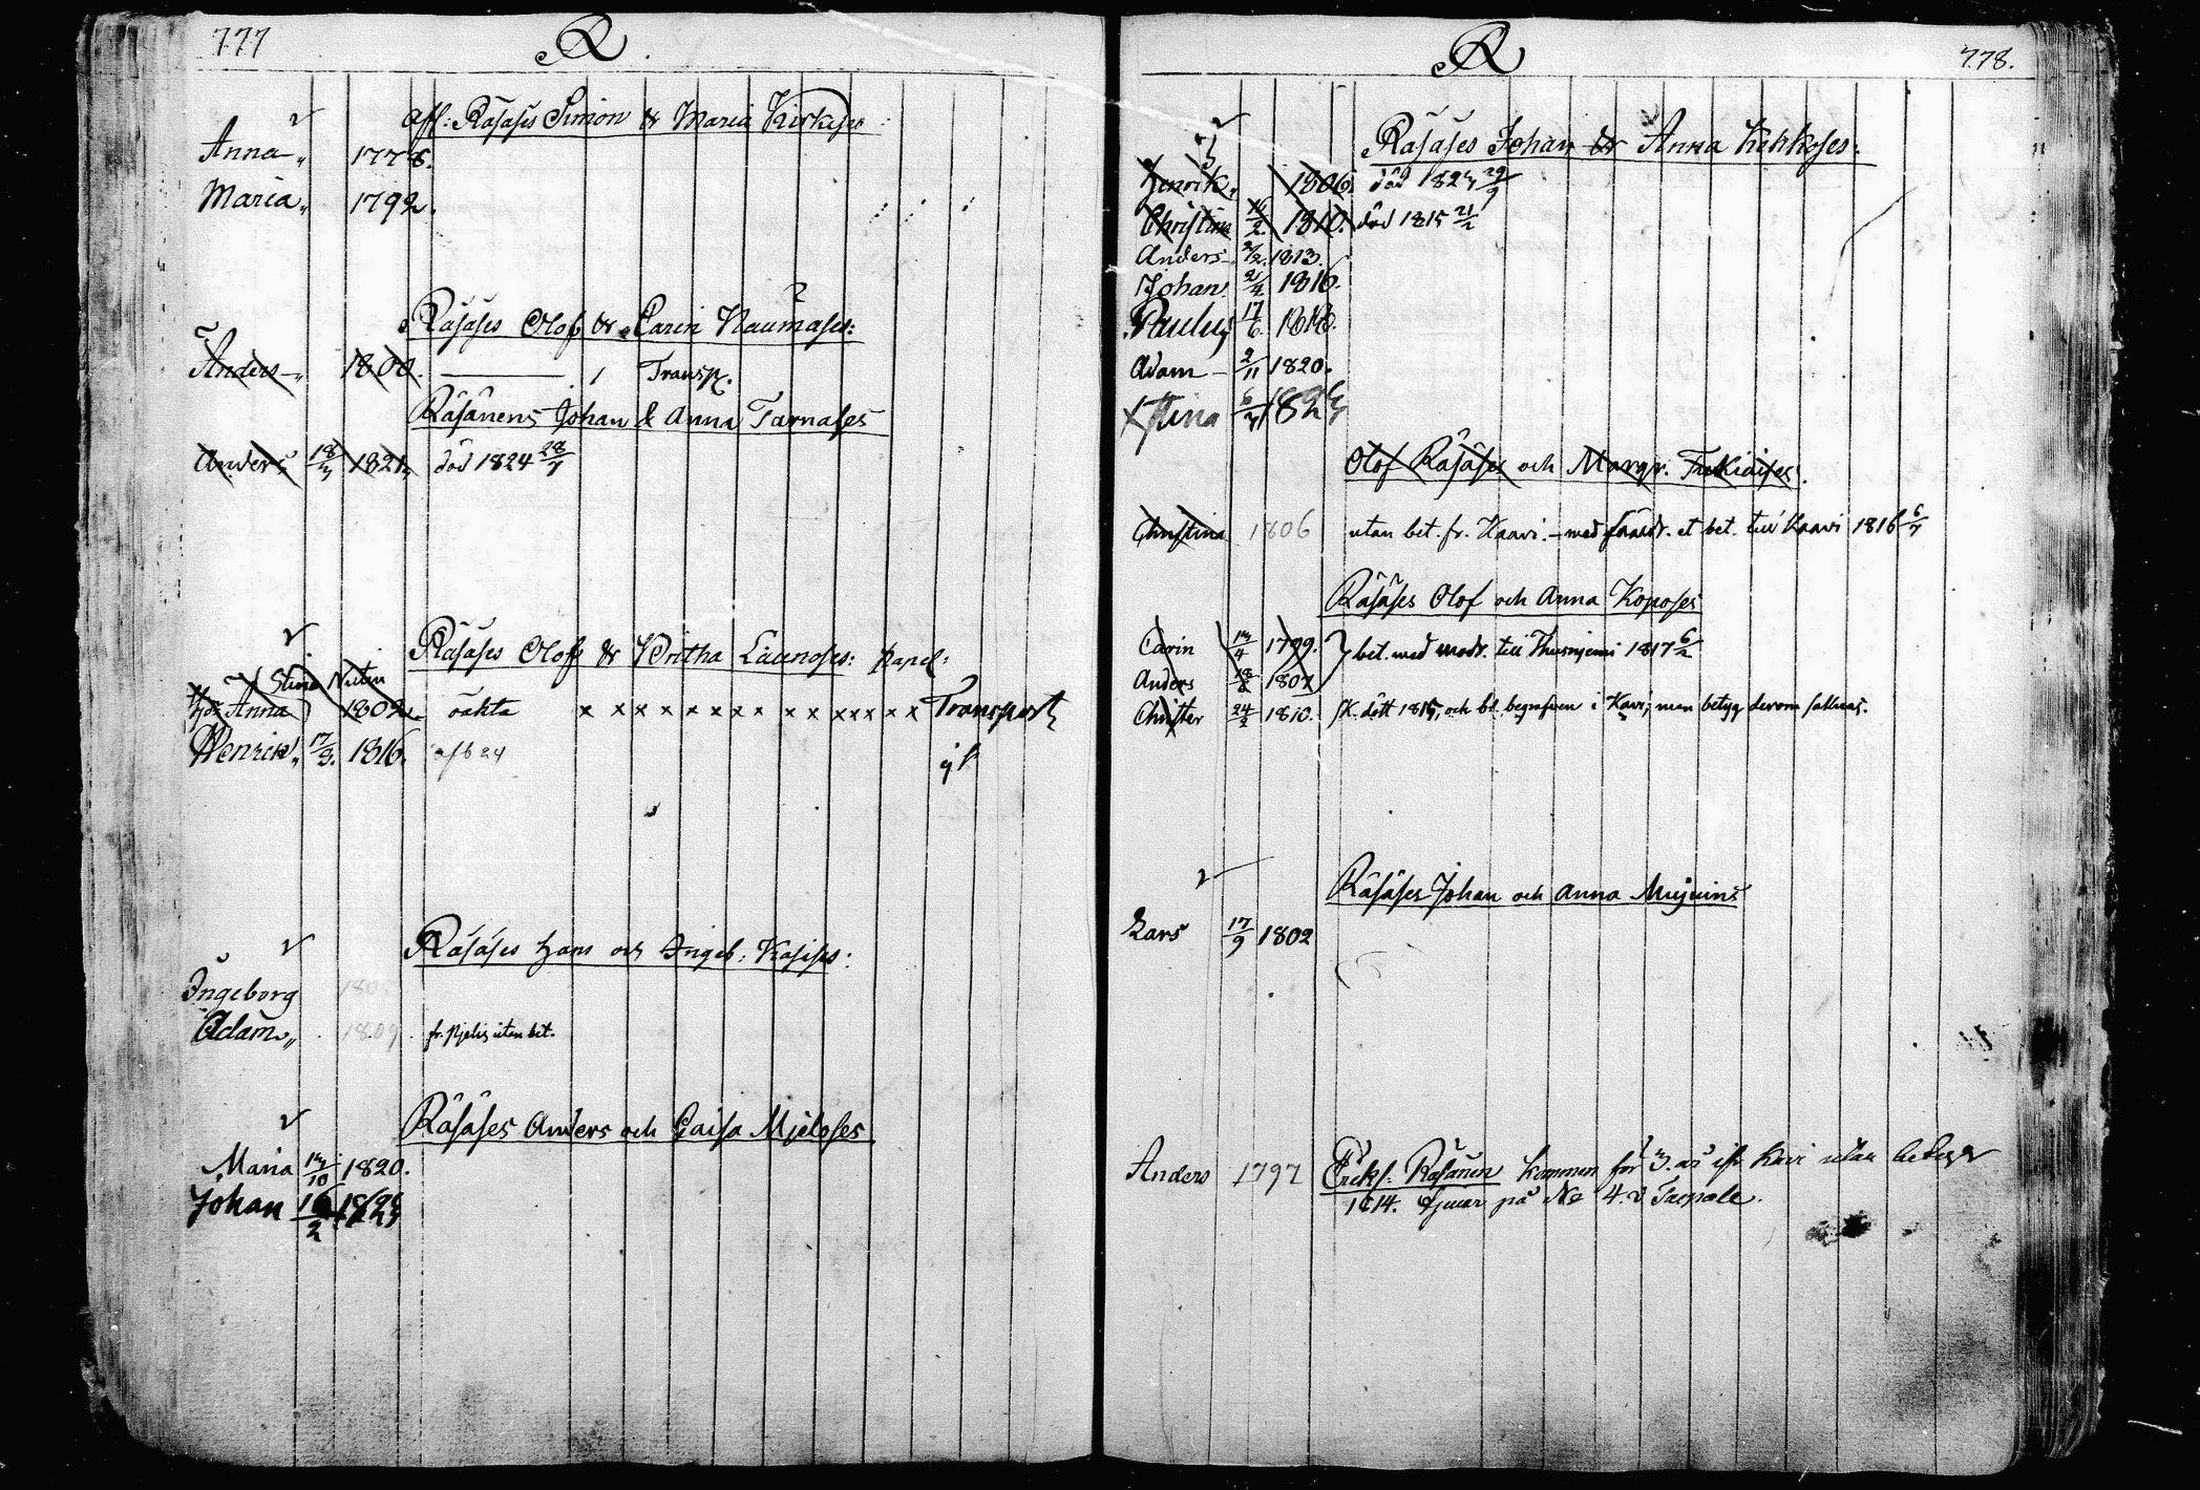 777
R.
Afl: Räsäses Simon & Maria
Anna 1778.
Maria 1792.
Räsäses Olof & Carin Naumases:
Anders 1800. 1 Transp.
Räsänens Johan & Anna Tarnases
Anders 18/3 1823 död 1824 28/7
Räsäses Olof & Britha Launoses: kapel:
Stina
Anna 1802. oäkta x x x x x x x x x x x x x x x Transport
Henrik 17/3. 1816.
Räsäses Hans och Ingeb: Kasises:
Ingeborg
Adam 1809. utan bet.
Räsäses Anders och Caisa Mjeloses
Maria 13/10 1820.
Johan 16/2 1823
R
778.
Räsäses Johan & Anna Kekkoses:
Henrik 1806. död 1823 29/9
Christina 1810. död 1815 21/2
Anders 1813.
Johan 1816.
Paulus 17/6. 1818.
Adam 2/11 1820.
Stina 6/3 1823
Olof Räsäses och Margr.
Christina 1806 utan bet. fr. Kaavi. – med et bet. till Kaavi 1816 6/7
Räsäses Olof och Anna Koposes
Carin 13/4 1799. bet. med modr. till Thusnjemi 1817 6/2
Anders 1807
Christer 24/2 1810. sk. dött 1815, och bl. begrafven i Kavi, men betyg derom saknas.
Räsäses Johan och Anna Mujuins
Lars 17/9 1802
Anders 1797 Eriks: Räsänen kommen för 3. år ifr Kavi utan betyg
1814. tjenar på No 4.